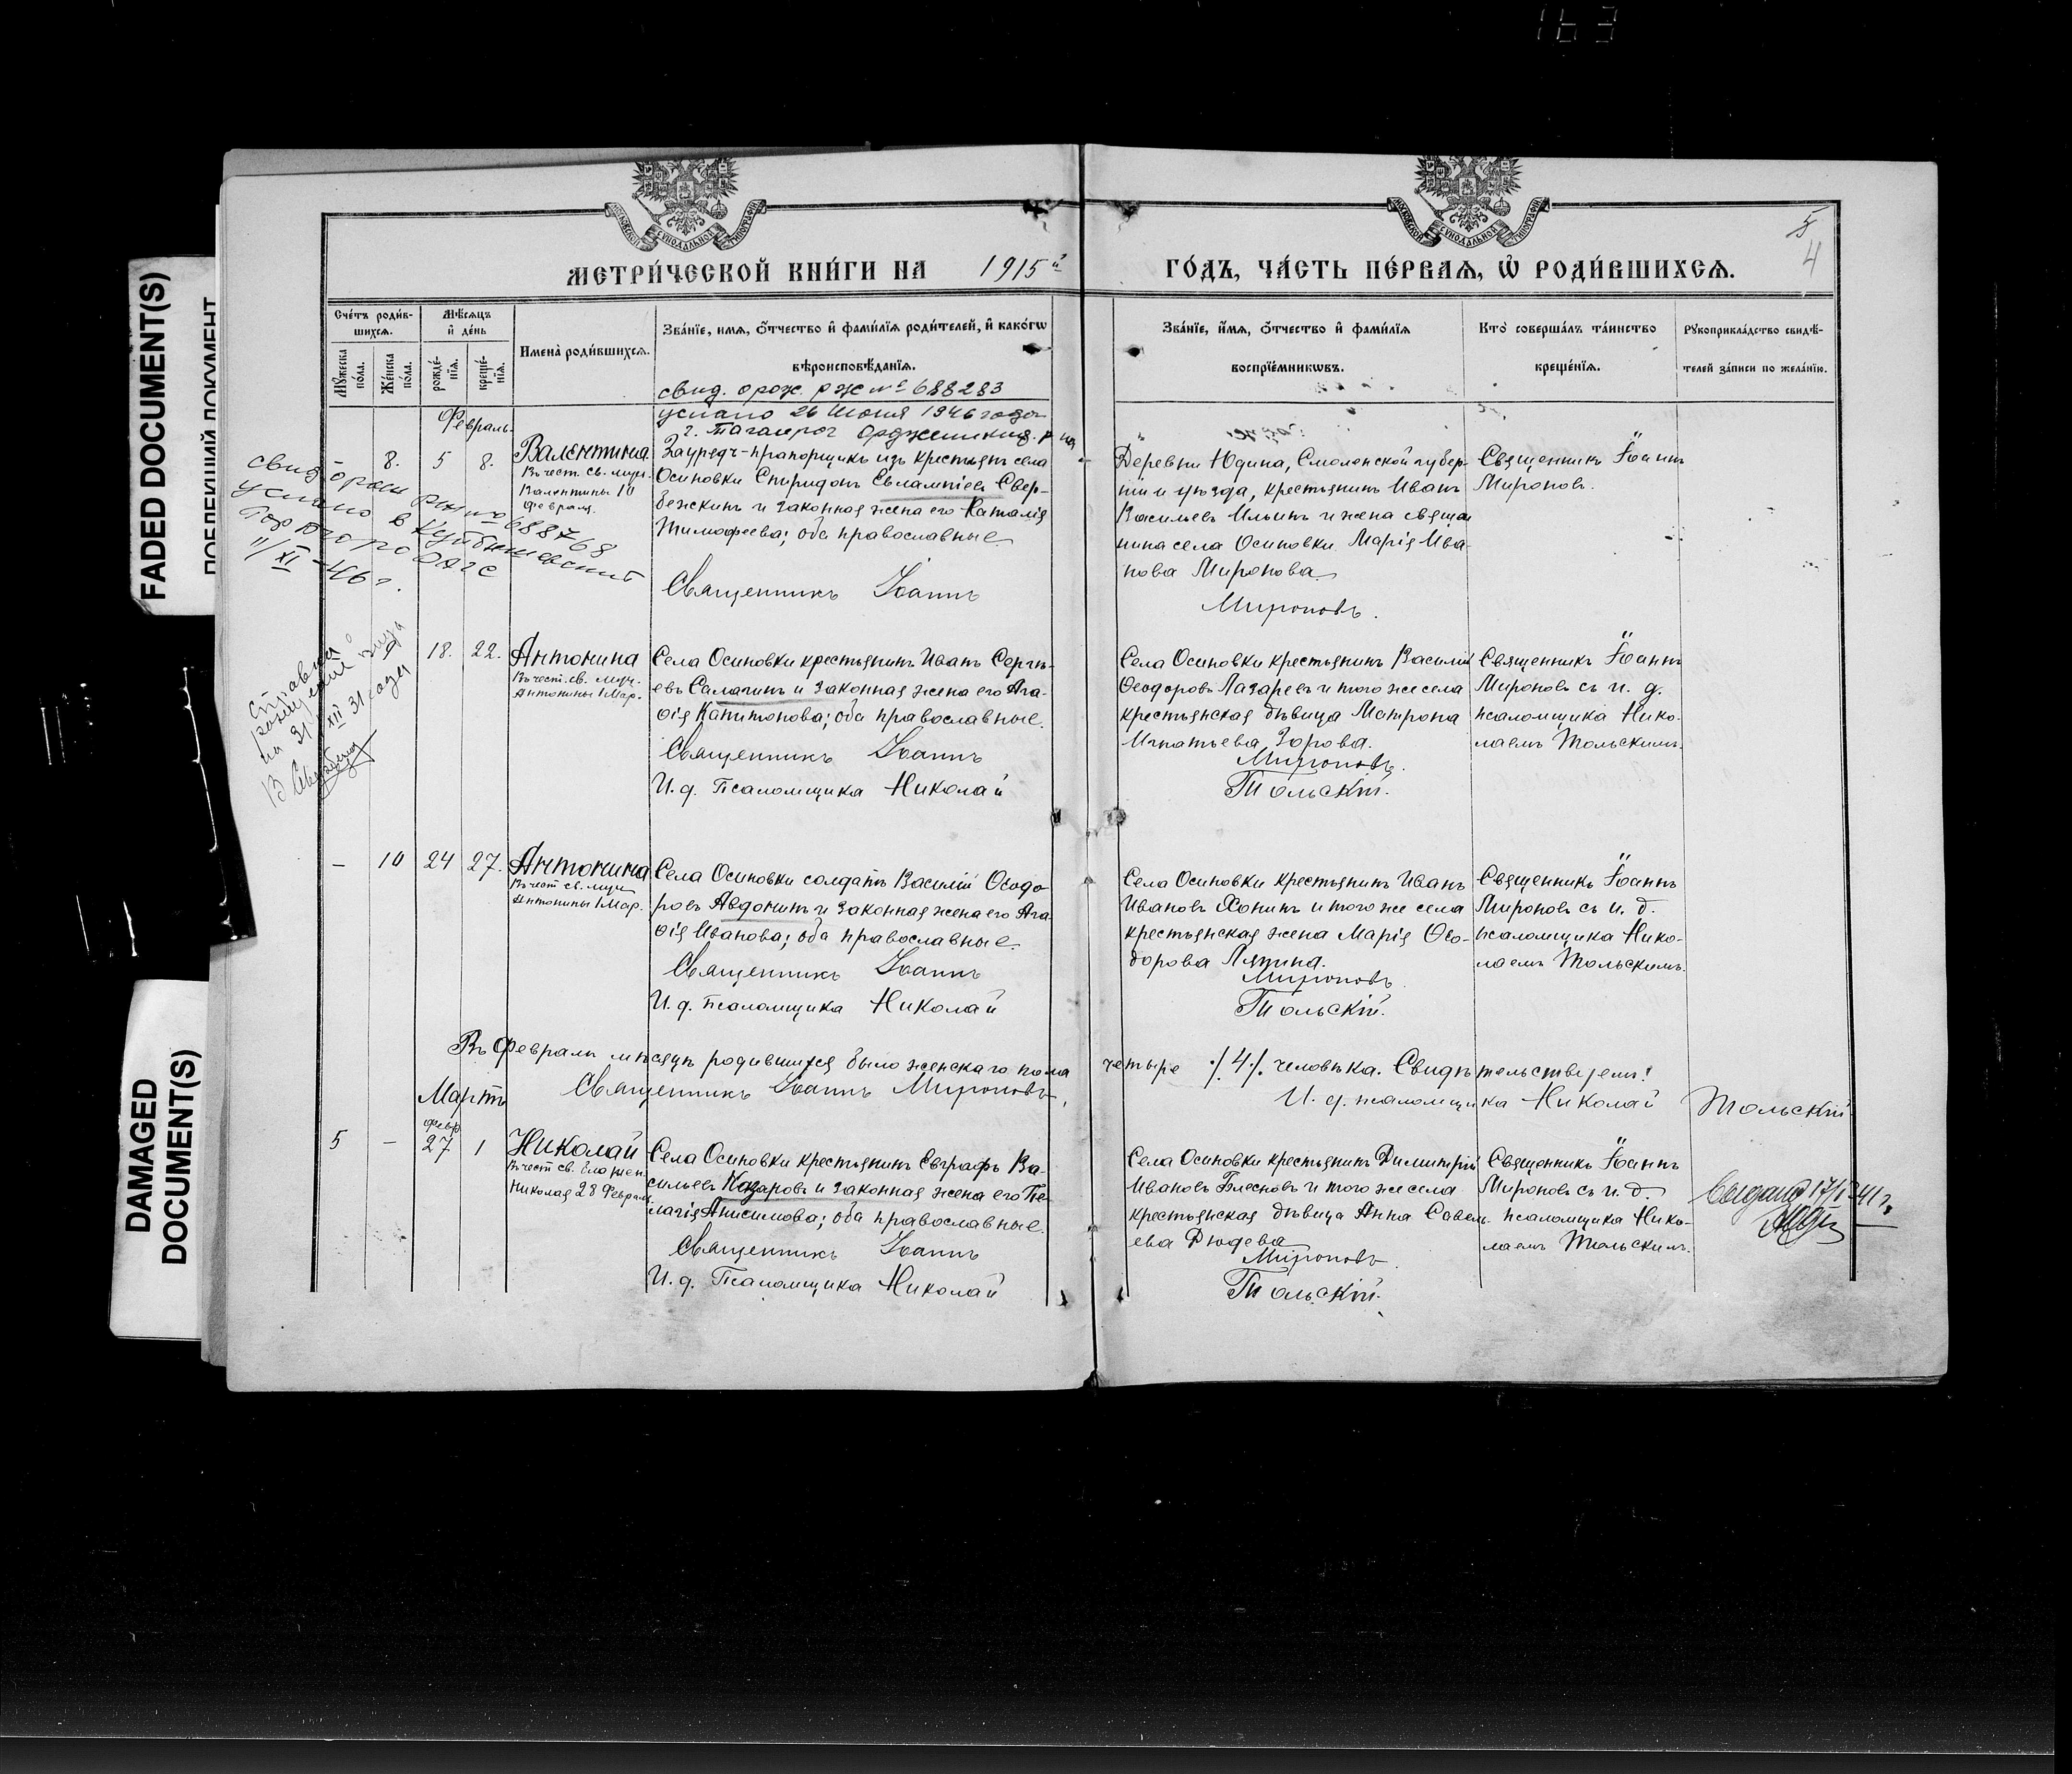 163
FADED DOCUMENT(S)
DAMAGED
DOCUMENT(S)
МОСКОВСКОЙ СѴНОДАЛЬНОЙ ТИПОГРАФІИ
МОСКОВСКОЙ СѴНОДАЛЬНОЙ ТИПОГРАФІИ
5
4
МЕТРИ́ЧЕСКОЙ КНИ́ГИ НА 1915й
ГО́ДЪ, ЧА́СТЬ ПЕ́РВАЯ, Ѡ РОДИ́ВШИХСЯ.
Сче́тъ роди́в-
шихся.
Мѣ́сяцъ
и де́нь
Му́жеска
по́ла.
Же́нска
по́ла.
рожде́-
нїя.
креще́-
нїя.
Имена̀ роди́вшихся.
Зва́нїе, имя, о́тчество и фами́лїя роди́телей, и како́гѡ
вѣроисповѣ́данїя.
Зва́нїе, и́мя, о́тчество и фами́лїя
воспрїе́мникѡвъ.
Кто̀ соверша́лъ та́инство
креще́нїя.
Рукоприкла́дство свидѣ́-
телей за́писи по жела́нїю.
свид. о рож. рж № 688283
услано 26 июня 1946 года
г. Таганрог Орджоникид. р-на
Февраль.
8. 5 8.
Валентина
Въ чест. св. муч.
Валентины 10
Февраля.
Зауредъ-прапорщикъ изъ крестьянъ села
Осиновки Спиридонъ Евлампіевъ Свер-
бежкинъ и законная жена его Наталія
Тимофеева; оба православные
Священникъ Іоаннъ
Деревни Юдина, Смоленской губер-
ніи и уѣзда, крестьянинъ Иванъ
Васильевъ Ильинъ и жена священ
ника села Осиновки Марія Ива-
нова Миронова
Мироновъ.
Священникъ Іоаннъ
Мироновъ.
свид о рож рж № 688768
услано в Куйбышевский
11/XI-46 г.
справка
на 31/XII 31 года
9 18. 22.
Антонина
Въ чест. св. муч.
Антонины 1 Мар.
Села Осиновки крестьянинъ Иванъ Сергѣ-
евъ Салагинъ и законная жена его Ага-
ѳія Капитонова; оба православные.
Священникъ Іоаннъ
И. д. Псаломщика Николай
Села Осиновки крестьянинъ Василій
Ѳеодоровъ Лазаревъ и того же села
крестьянская дѣвица Матрона
Игнатьева Зорова.
Мироновъ.
Тольскій.
Священникъ Іоаннъ
Мироновъ съ и. д.
псаломщика Нико-
лаемъ Тольскимъ.
- 10 24 27.
Антонина
Въ чест св. муч
Антонины 1 Мар.
Села Осиновки солдатъ Василій Ѳеодо-
ровъ Авдонинъ и законная жена его Ага-
ѳія Иванова; оба православные.
Священникъ Іоаннъ
И. д. псаломщика Николай
Села Осиновки крестьянинъ Иванъ
Ивановъ Хонинъ и того же села
крестьянская жена Марія Ѳео-
дорова Ляпина.
Мироновъ
Тольскій.
Священникъ Іоаннъ
Мироновъ съ и. д.
псаломщика Нико-
лаемъ Тольскимъ.
Въ Февралѣ мѣсяцѣ родившихся было женскаго пола четыре ./4/. человѣка. Свидѣтельствуемъ:
Священникъ Іоаннъ Мироновъ, И. д. псаломщика Николай Тольскій
Мартъ
февр
5 - 27 1
Николай
Въ чест св. блажен
Николая 28 Февраля.
Села Осиновки крестьянинъ Евграфъ Ва-
сильевъ Назаровъ и законная жена его Пе-
лагія Анисимова; оба православные.
Священникъ Іоаннъ
И. д. Псаломщика Николай
Села Осиновки крестьянинъ Димитрій
Ивановъ Блесновъ и того же села
крестьянская дѣвица Анна Савель-
ева Дюдева
Мироновъ
Тольскій.
Священникъ Іоаннъ
Мироновъ съ и. д.
псаломщика Нико-
лаемъ Тольскимъ.
Выдано 17/I 41 г.